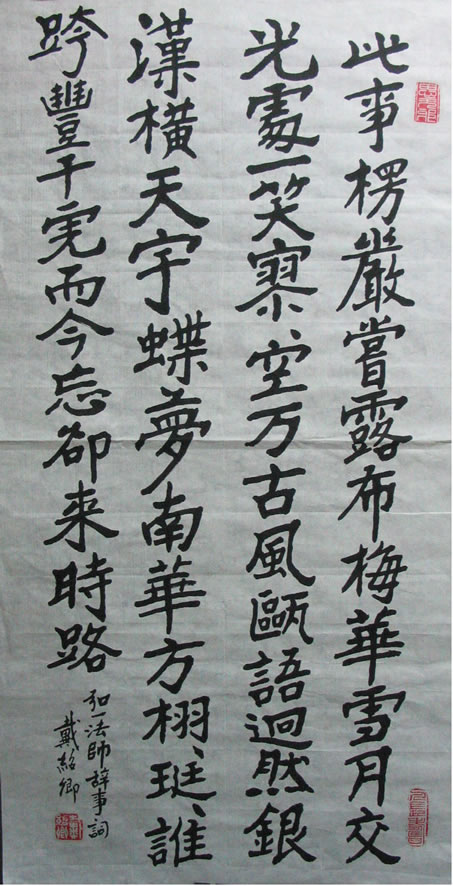 此事楞嚴嘗露布梅華雪月交
光處一笑寥、空万古風甌語迥然銀
漢橫天宇蝶夢南華方栩、珽、誰
跨豐干虎而今忘卻来時路
弘一法師辞事詞
戴卿